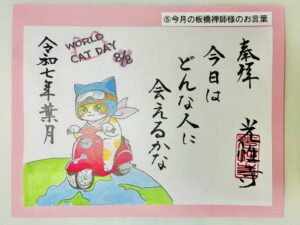 ⑤今月の板橋禅師様のお言葉
奉拝
今日は
どんな人に
会えるかな
光性寺
WORLD
CAT DAY
8/8
令和七年葉月